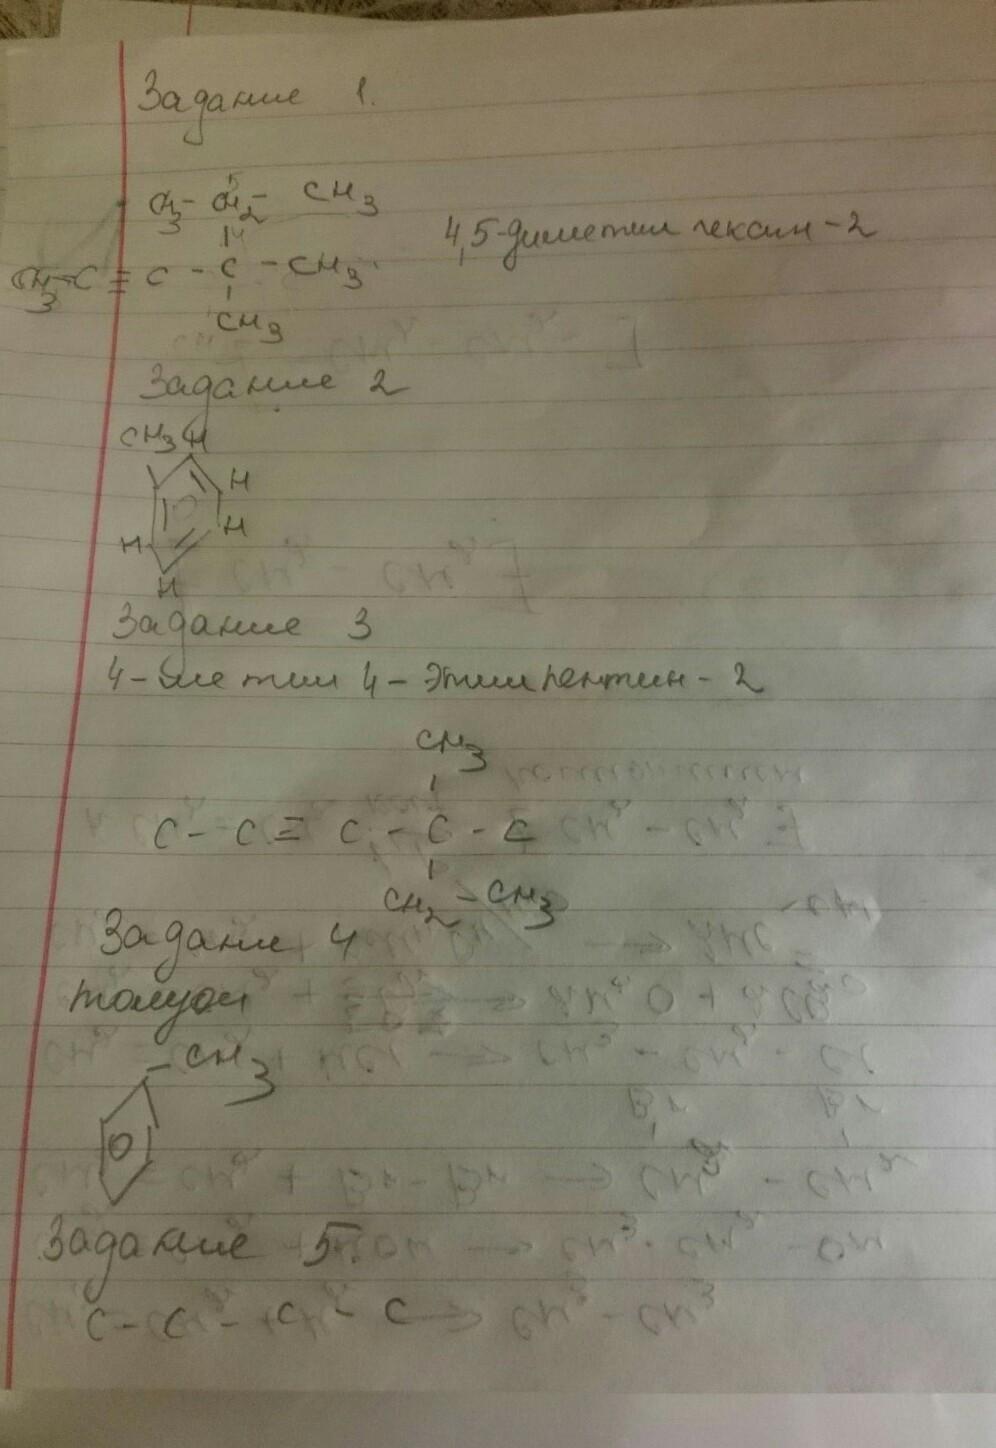 Задание 1.
5
CH3- CH2- CH3
4
4,5-диметил гексин-2
CH3-C ≡ C - C - CH3
CH3
Задание 2
CH3 H
H
H
H
H
Задание 3
4-метил 4-этилпентин-2
CH3
C - C ≡ C - C - C
CH2 - CH3
Задание 4
толуол
- CH3
Задание 5.
C - C - C - C